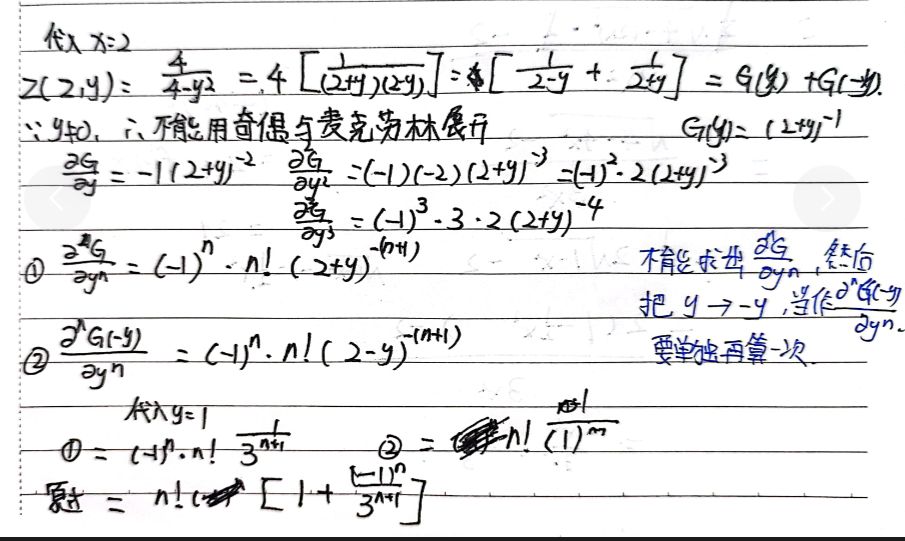 代入 x=2
Z(2,y) = 4/(4-y²) = 4 [1/((2+y)(2-y))] = [1/(2-y) + 1/(2+y)] = G(y) + G(-y).
∵ y≠0, ∴ 不能用奇偶与麦克劳林展开 G(y) = (2+y)⁻¹
∂G/∂y = -1(2+y)⁻² ∂²G/∂y² = (-1)(-2)(2+y)⁻³ = (-1)²·2(2+y)⁻³
∂³G/∂y³ = (-1)³·3·2(2+y)⁻⁴
① ∂ⁿG/∂yⁿ = (-1)ⁿ·n!(2+y)^-(n+1)
不能求出 ∂ⁿG/∂yⁿ, 然后
把 y→-y, 当作 ∂ⁿG(-y)/∂yⁿ.
要单独再算一次.
② ∂ⁿG(-y)/∂yⁿ = (-1)ⁿ·n!(2-y)^-(n+1)
代入 y=1
① = (-1)ⁿ·n! 1/3ⁿ⁺¹ ② = n! 1/(1)ⁿ⁺¹
原式 = n! [1 + (-1)ⁿ/3ⁿ⁺¹]